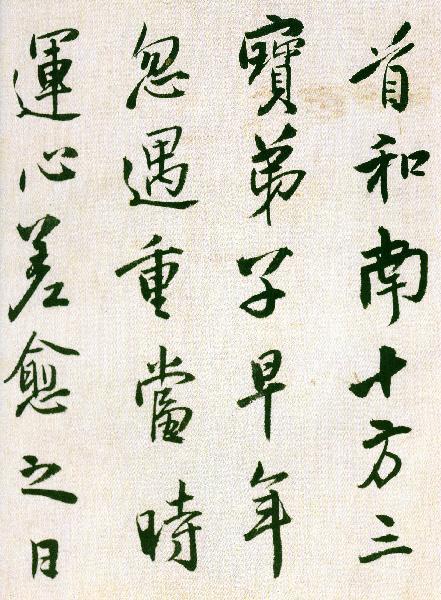 首和南十方三
寶弟子早年
忽遇重當時
運心差愈之日